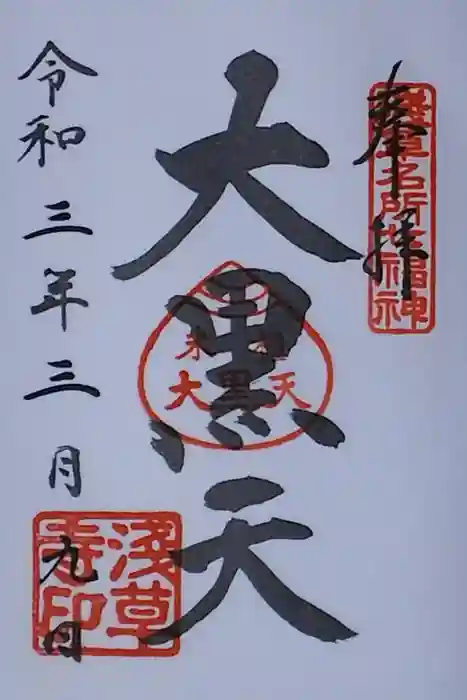 奉拝
浅草名所七福神
大黒天
米 種
大黒天
令和三年三月九日
浅草寺印